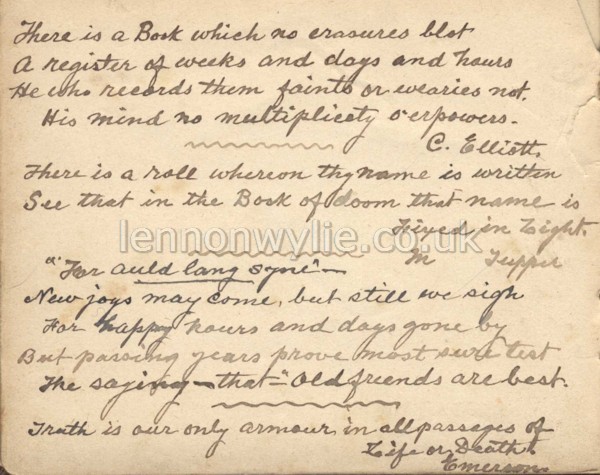 There is a Book which no erasures blot
A register of weeks and days and hours
He who records them faints or wearies not.
His mind no multiplicity o'erpowers.
C. Elliott.
There is a roll whereon thy name is written
See that in the Book of doom that name is
Fixed in Light.
lennonwylie.co.uk
M Tupper
"For auld lang syne"
New joys may come, but still we sigh
For happy hours and days gone by
But passing years prove most sure test
The saying - that - "Old friends are best.
Truth is our only armour in all passages of
Life or Death.
Emerson.